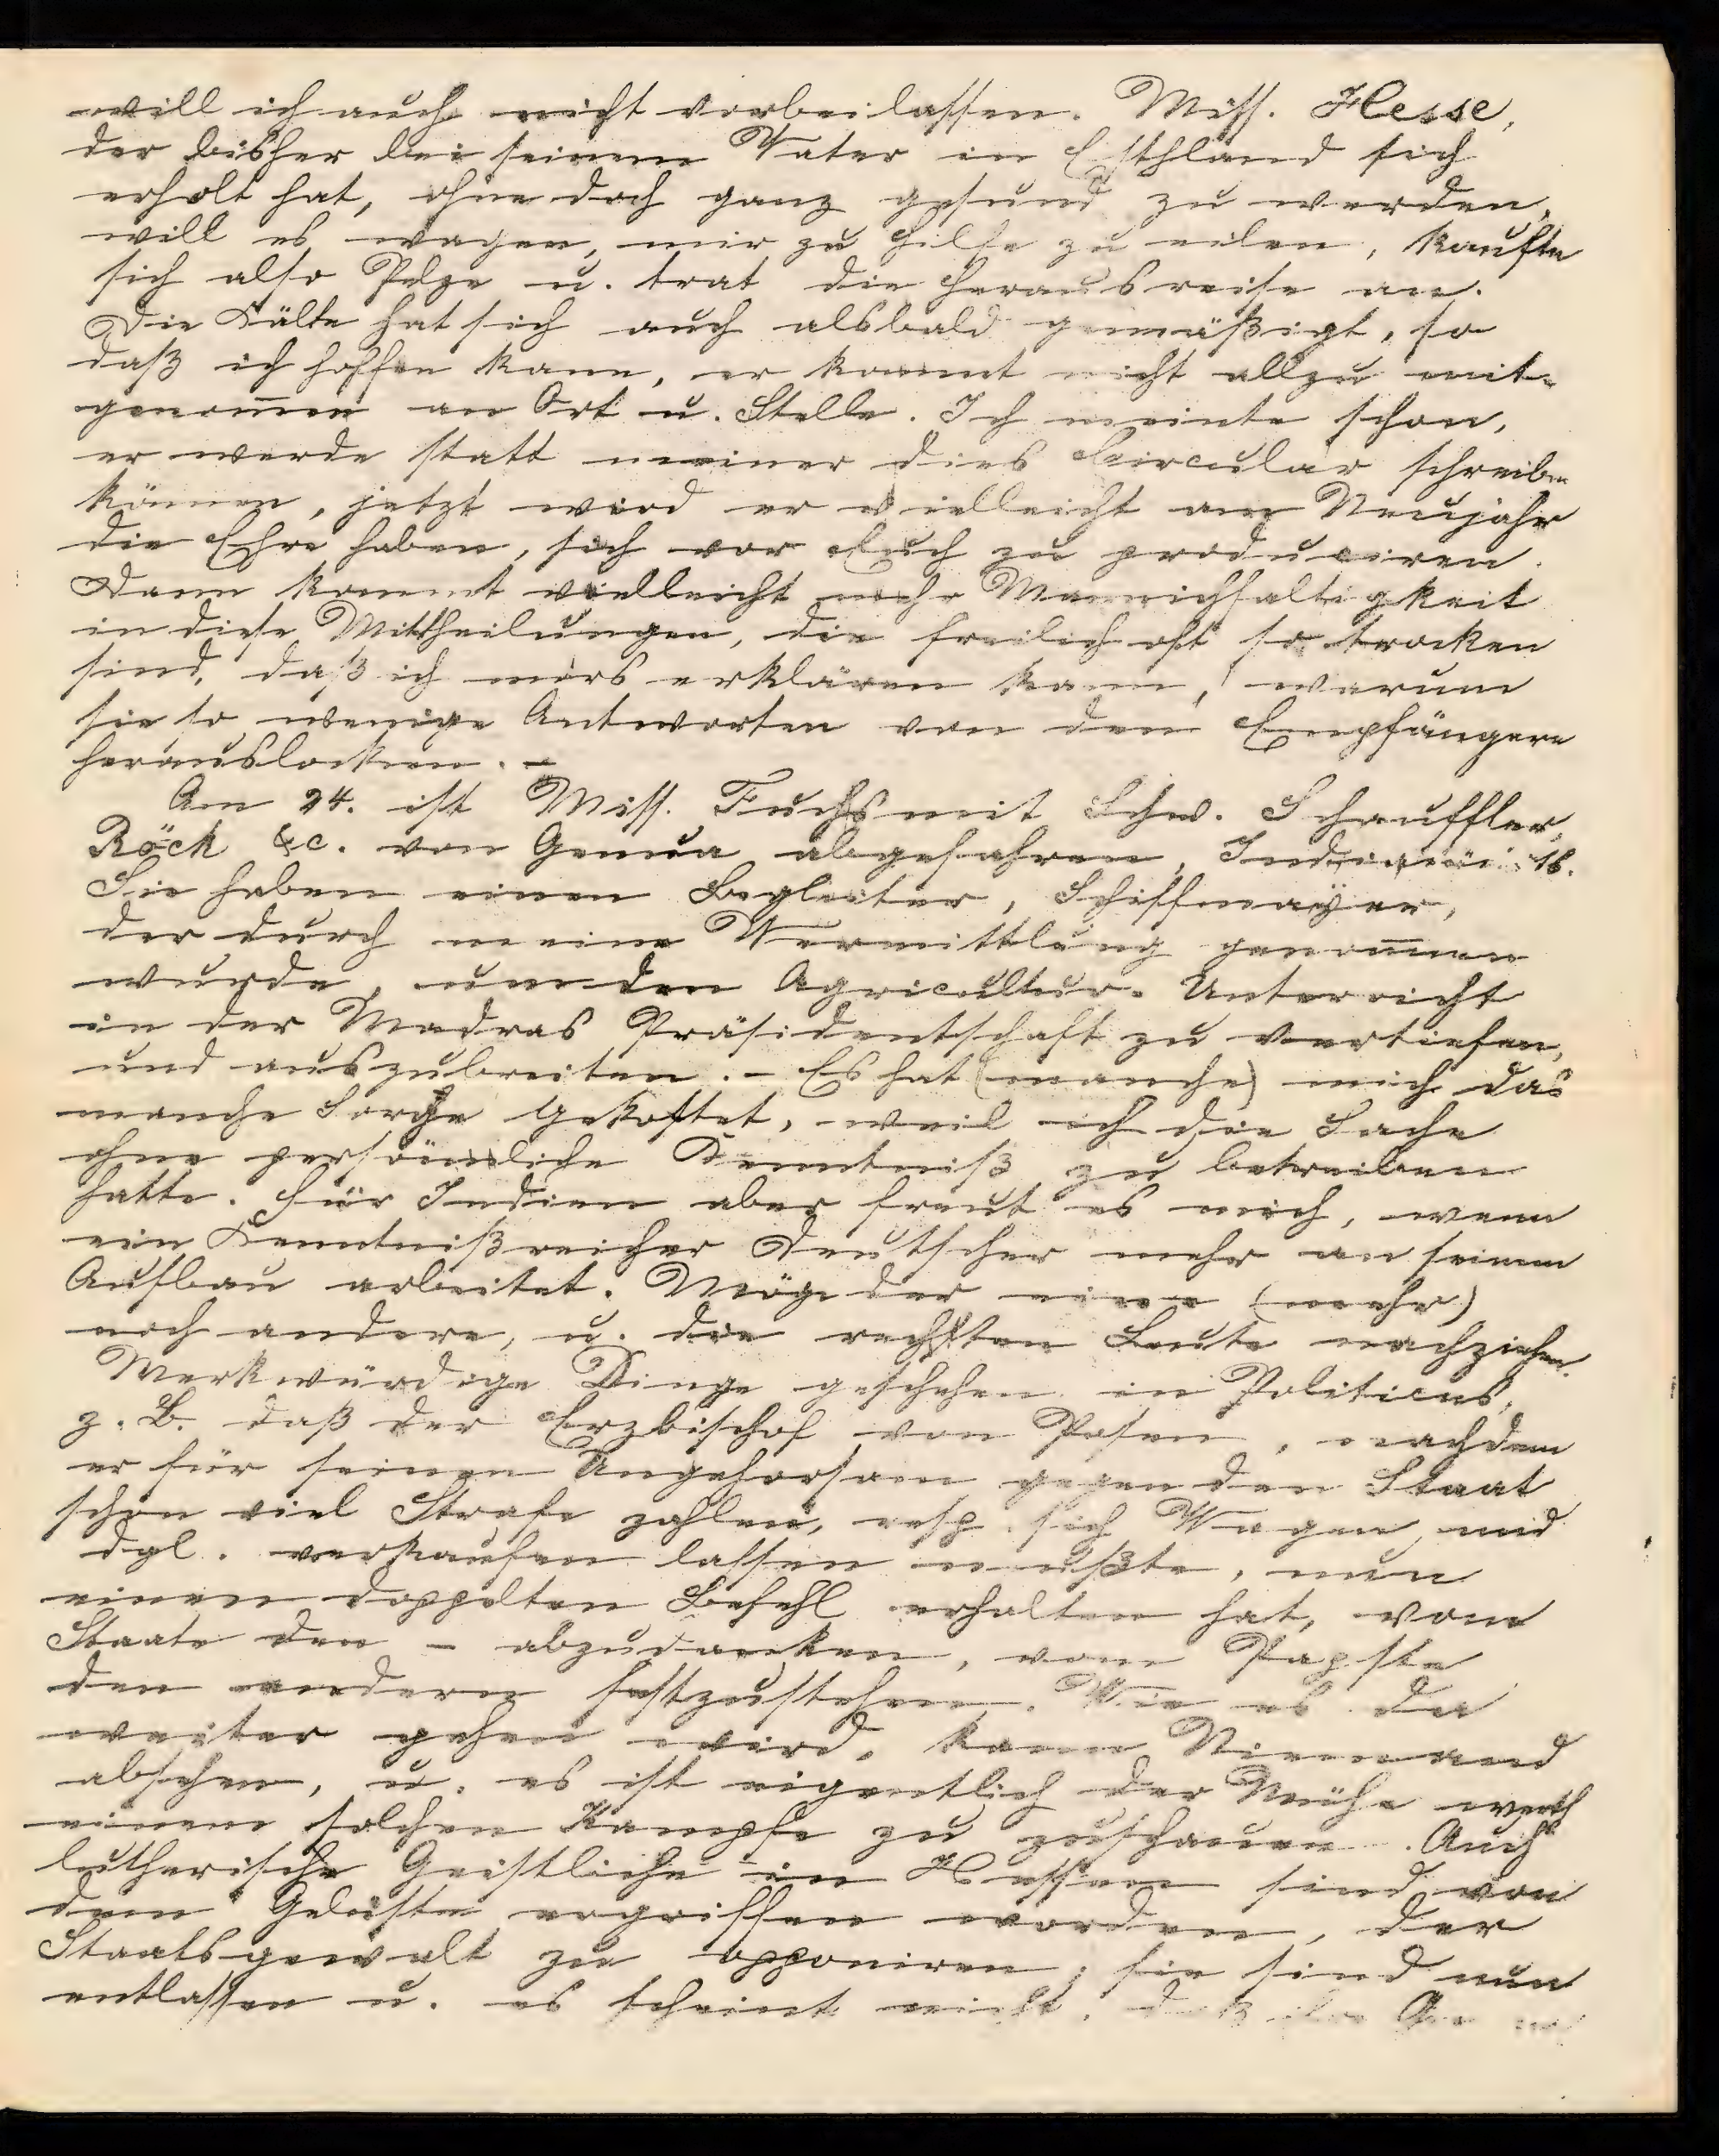 will ich auch nicht vorbeilassen. Miss. Hesse,
der bisher bei seinem Vater in Esthland sich
erholt hat, ohne doch ganz gesund zu werden,
will es wagen, mir zu Hilfe zu eilen, kaufte
sich also Pelze u. trat die Herausreise an.
Die Kälte hat sich auch alsbald gemäßigt, so
daß ich hoffen kann, er kommt nicht allzu mit-
genom̄en an Ort u. Stelle. Ich meinte schon,
er werde statt meiner dies Circular schreiben
können, jetzt wird er vielleicht am Neujahr
die Ehre haben, sich vor Euch zu produciren.
Dann kommt vielleicht mehr Mannichfaltigkeit
in diese Mittheilungen, die freilich oft so trocken
sind, daß ich mirs erklären kann, warum
sie so wenige Antworten von den Empfängern
herauslocken. -
Am 24. ist Miss. Fuchs mit Schw. Schauffler,
Röck &c. von Genua abgefahren,
Sie haben einen Begleiter, Schiffmayer,
der durch meine Vermittlung genom̄en
wurde, um den Agricultur-Unterricht
in der Madras Präsidentschaft zu vertiefen,
und auszubreiten. - Es hat (manche) mich das
manche Sorge gekostet, weil ich die Sache
ohne persönliche Kenntniß zu betreiben
hatte. Für Indien aber freut es mich, wenn
ein Kenntnißreicher Deutscher mehr an seinem
Aufbau arbeitet. Möge der eine (mehr)
noch andere, u. die rechten Leute nachziehen.
Merkwürdige Dinge geschehen in Politicus,
z. B. daß der Erzbischof von Posen, nachdem
er für seinen Ungehorsam gegen den Staat
schon viel Strafe zahlen, resp. sich Wagen und
dgl. verkaufen lassen mußte, nun
einen doppelten Befehl erhalten hat, vom
Staate den - abzudanken, vom Papste
den andern festzustehen. Wie es da
weiter gehen wird, kann Niemand
absehen, u. es ist eigentlich der Mühe werth
einem solchen Kampfe zu zuschauen. Auch
lutherische Geistliche in Hessen sind von
dem Gelüste ergriffen worden, der
Staatsgewalt zu opponiren; sie sind nun
entlassen u. es scheint nicht, daß